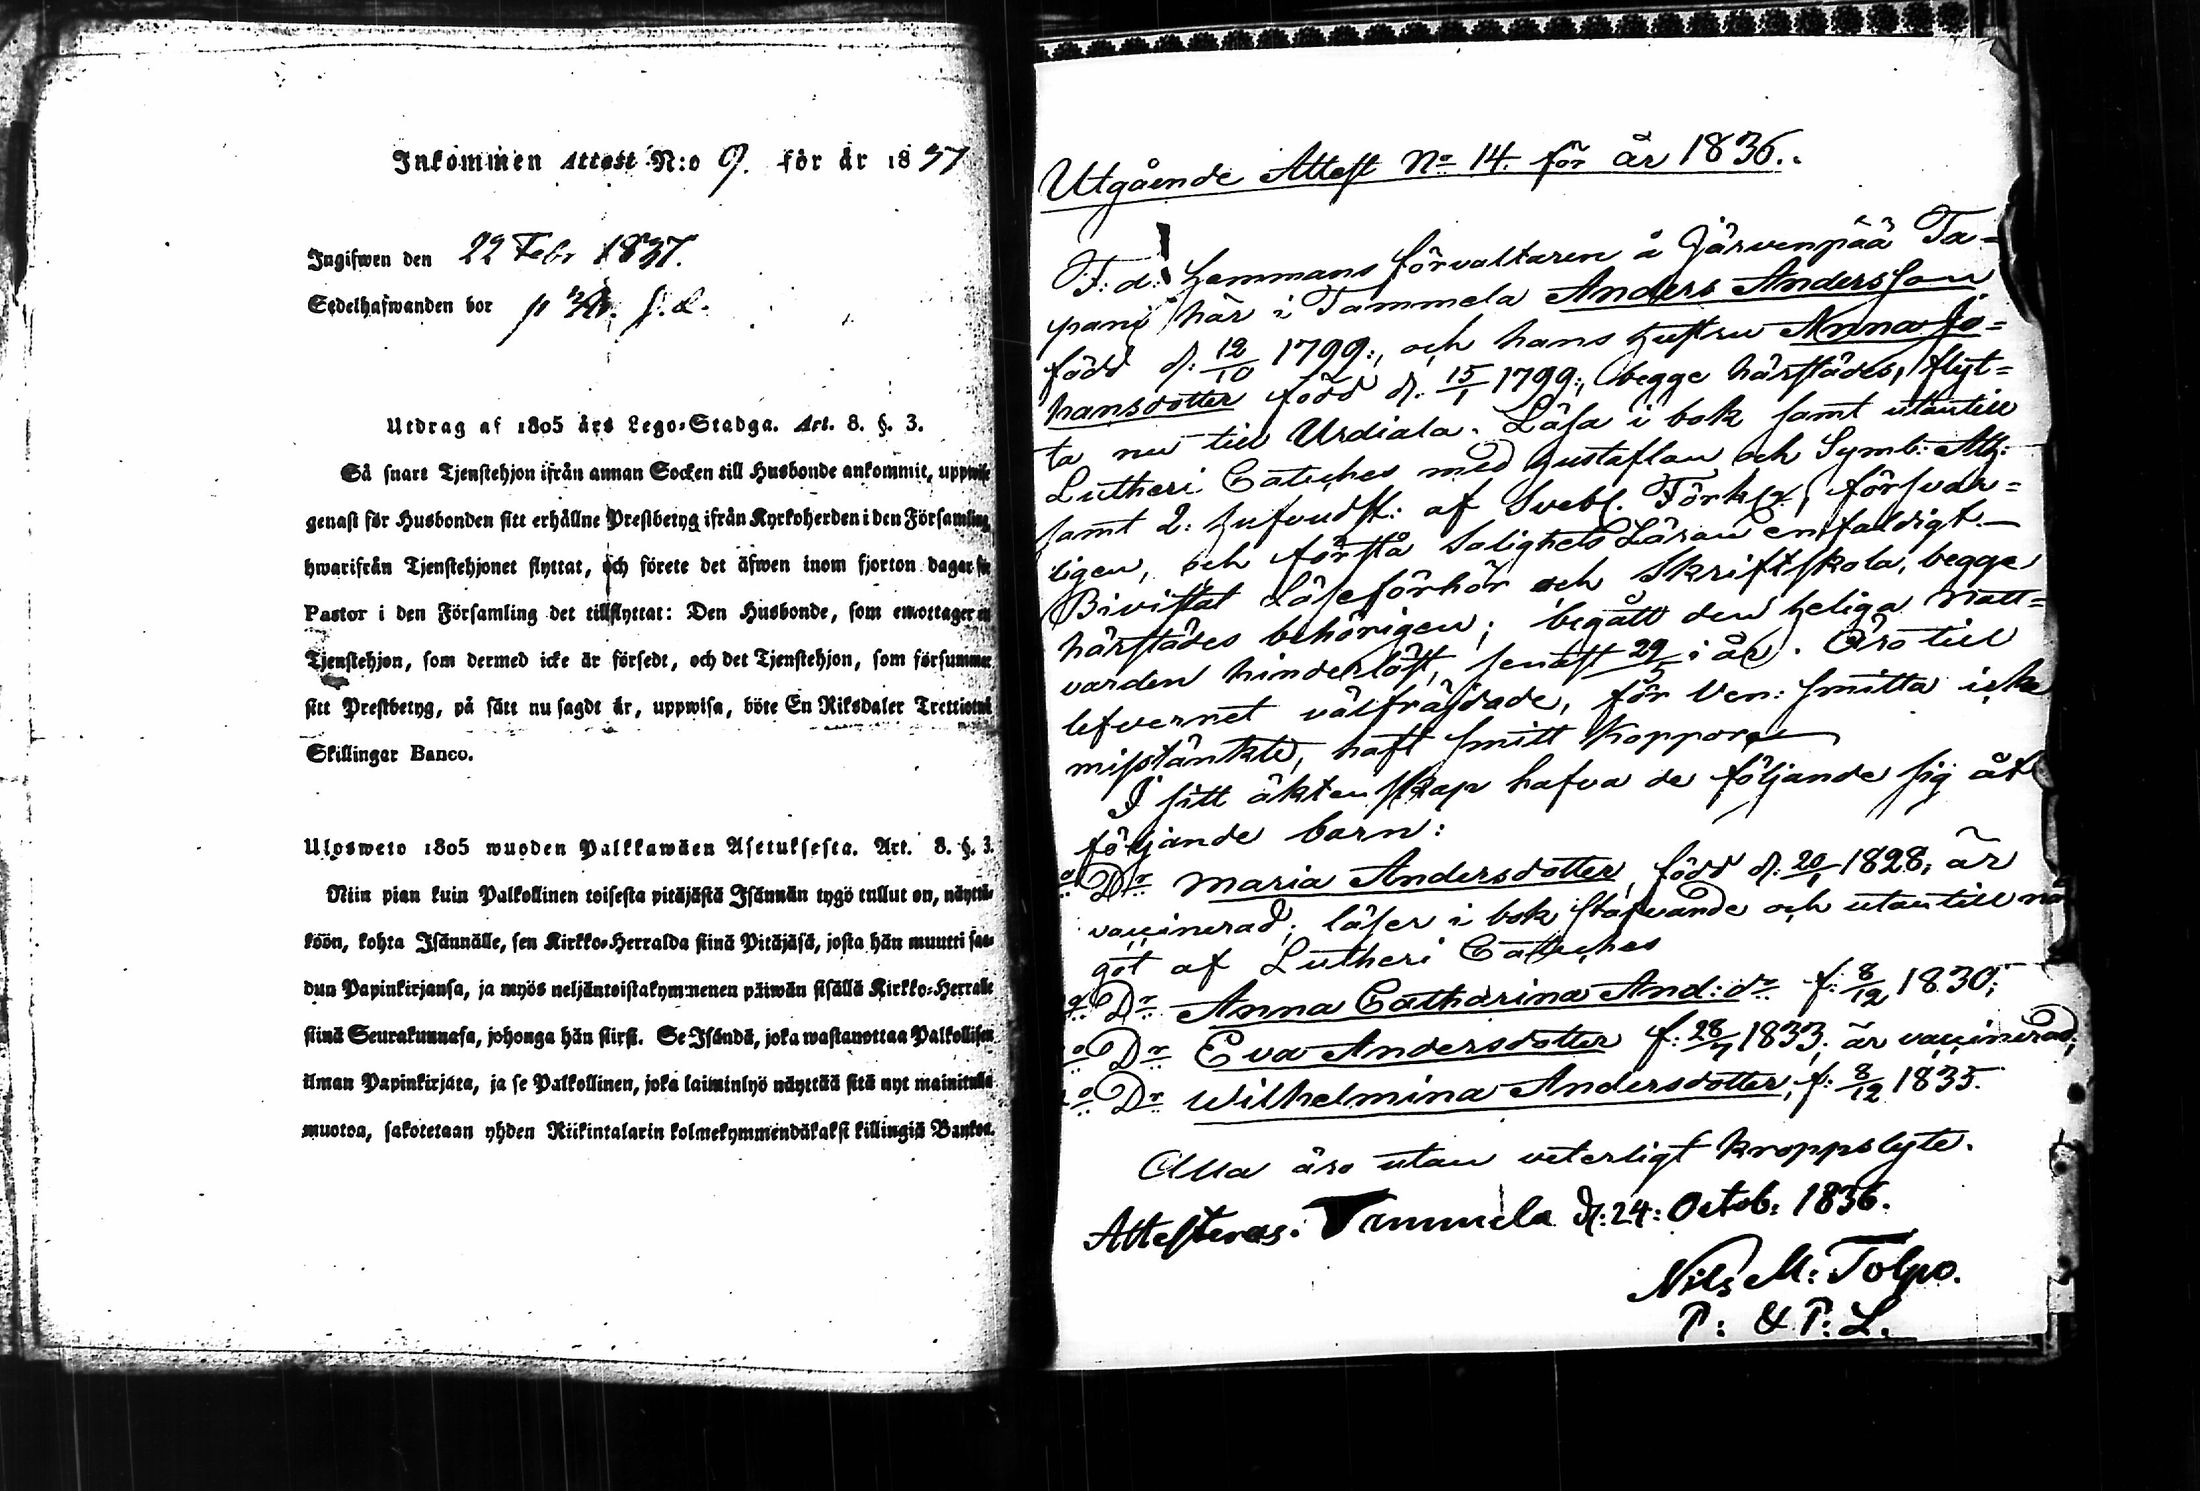 Inkommen Attest N:o 9. för år 1837
Ingifwen den 22 Febr 1837.
Sedelhafwanden bor
Utdrag af 1805 års Lego-Stadga. Art. 8. §. 3.
Så snart Tjenstehjon ifrån annan Socken till Husbonde ankommit, uppwise
genast för Husbonden sitt erhållne Prestbetyg ifrån Kyrkoherden i den Församling
hwarifrån Tjenstehjonet flyttat, och förete det äfwen inom fjorton dagar för
Pastor i den Församling det tillflyttat: Den Husbonde, som emottager en
Tjenstehjon, som dermed icke är försedt, och det Tjenstehjon, som försummar
sitt Prestbetyg, på sätt nu sagdt är, uppwisa, böte En Riksdaler Trettiotwå
Skillingar Banco.
Ulosweto 1805 wuoden Palkkawäen Asetuksesta. Art. 8. §. 3.
Niin pian kuin Palkollinen toisesta pitäjästä Isännän tygö tullut on, näyttä-
köön, kohta Isännälle, sen Kirkko-Herralda siinä Pitäjäsä, josta hän muutti saa-
dun Papinkirjansa, ja myös neljäntoistakymmenen päiwän sisällä Kirkko-Herralle
siinä Seurakunnasa, johonga hän siirsi. Se Isändä, joka wastanottaa Palkollisen
ilman Papinkirjata, ja se Palkollinen, joka laiminlyö näyttää sitä nyt mainitulla
muotoa, sakotetaan yhden Riikintalarin kolmekymmendäkaksi killingiä Bankoa.
Utgående Attest No 14. för år 1836.
F: d: Hemmans förvaltaren å Järvenpää Ta-
pani här i Tammela Anders Andersson
född d: 12/10 1799:, och hans hustru Anna Jo=
hansdotter född d. 15/1 1799:, begge härstädes, flyt=
ta nu till Urdiala. Läsa i bok samt utantill
Lutheri Catches med Hustaflan och Symb: Ath:
samt 2: hufvudst: af Svebl. Förklr, försvar=
ligen, och förstå Salighets Läran enfaldigt.
Bivistat Läseförhör och Skriftskola, begge
härstädes behörigen; begått den heliga Natt=
varden hinderlöst, senast 29/5 i år. Äro till
lefvernet välfräjdade, för Ven: smitta icke
misstänkte, haft smitt koppor
I sitt äktenskap hafva de följande sig åt
följande barn:
Dr Maria Andersdotter, född d: 20/1 1828; är
vaccinerad; läser i bok stafvande och utantill nå
got af Lutheri Catches
Dr Anna Catharina And: dr f: 8/12 1830;
Dr Eva Andersdotter f: 28/7 1833; är vaccinerad;
Dr Wilhelmina Andersdotter, f: 8/12 1835.
Alla äro utan veterligt kroppslyte.
Attesteras. Tammela d: 24: Octob: 1836.
Nils M: Tolpo.
P: & P: L.